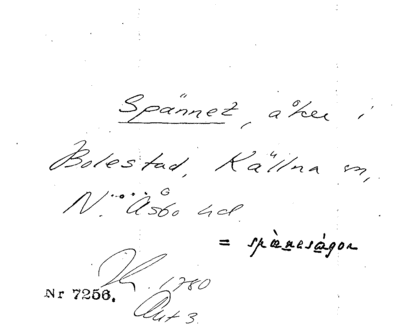 Spännet, åker i
Bolestad, Källna sn,
N. Åsbo hd.
= spånesågon
1780
Nr 7256.
Akt 3.